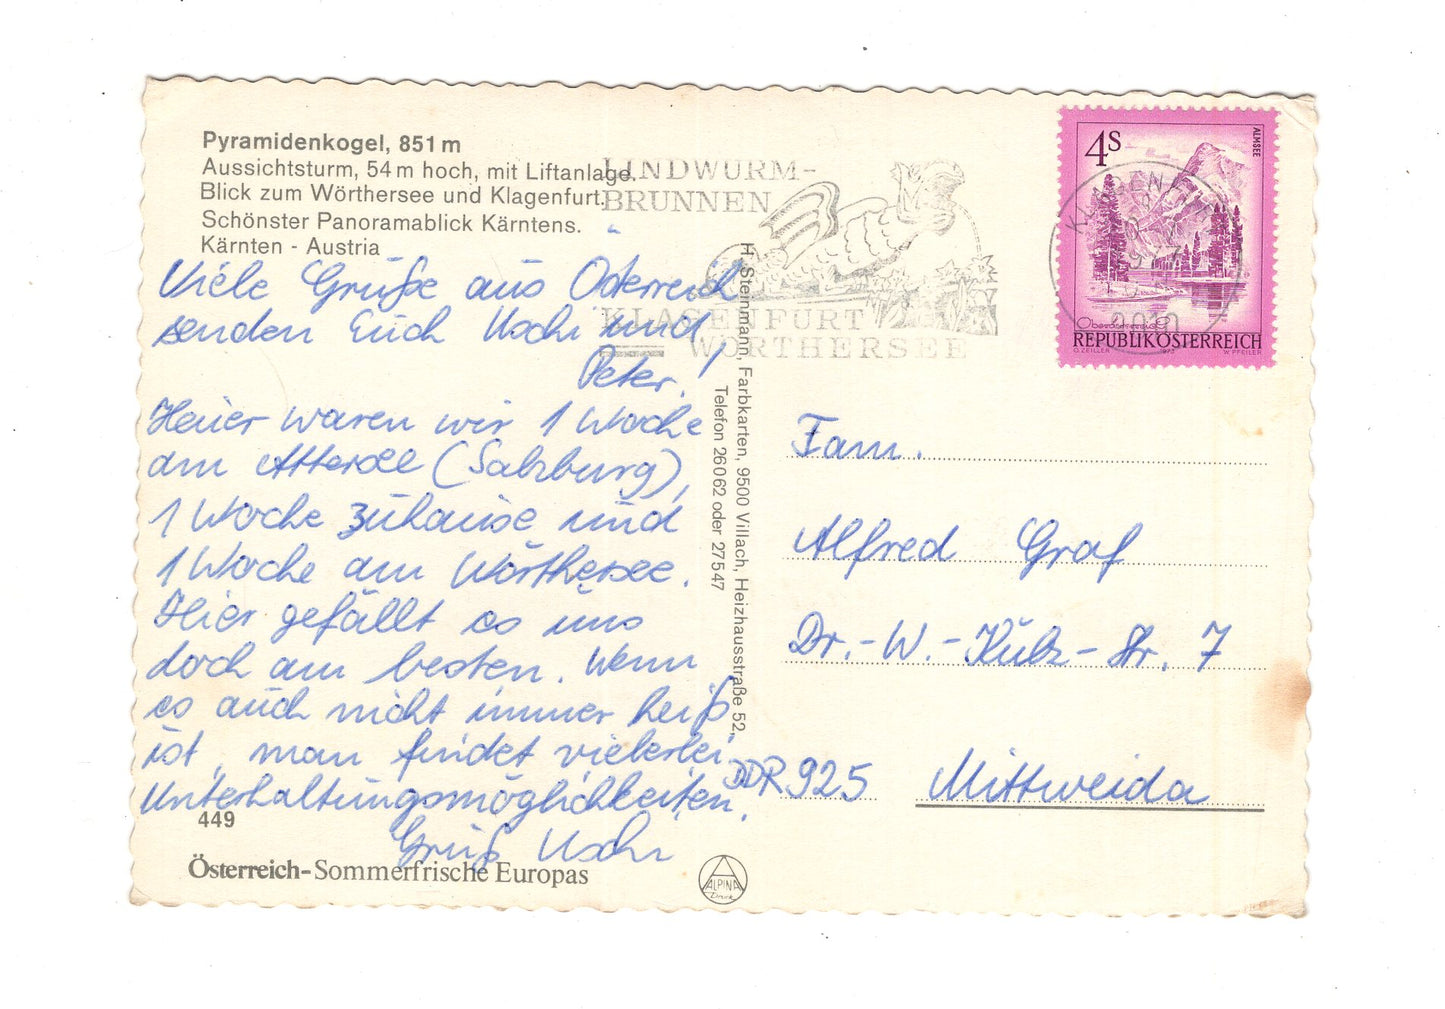 Pyramidenkogel, 851 m
Aussichtsturm, 54 m hoch, mit Liftanlage.
Blick zum Wörthersee und Klagenfurt.
Schönster Panoramablick Kärntens.
Kärnten - Austria
Viele Grüße aus Österreich
senden Euch Uschi und
Peter!
Heuer waren wir 1 Woche
am Attersee (Salzburg),
1 Woche zuhause und
1 Woche am Wörthersee.
Hier gefällt es uns
doch am besten. Wenn
es auch nicht immer heiß
ist, man findet vielerlei
Unterhaltungsmöglichkeiten.
Gruß Uschi
449
Österreich-Sommerfrische Europas
H. Steinmann, Farbkarten, 9500 Villach, Heizhausstraße 52,
Telefon 26062 oder 27547
ALPINA
Druck
LINDWURM-
BRUNNEN
KLAGENFURT
WÖRTHERSEE
4S
ALMSEE
Oberösterreich
REPUBLIK ÖSTERREICH
O. ZEILLER 1973 W. PFEILER
KLAGENFURT
9010
Fam.
Alfred Graf
Dr.-W.-Külz-Str. 7
DDR 925 Mittweida